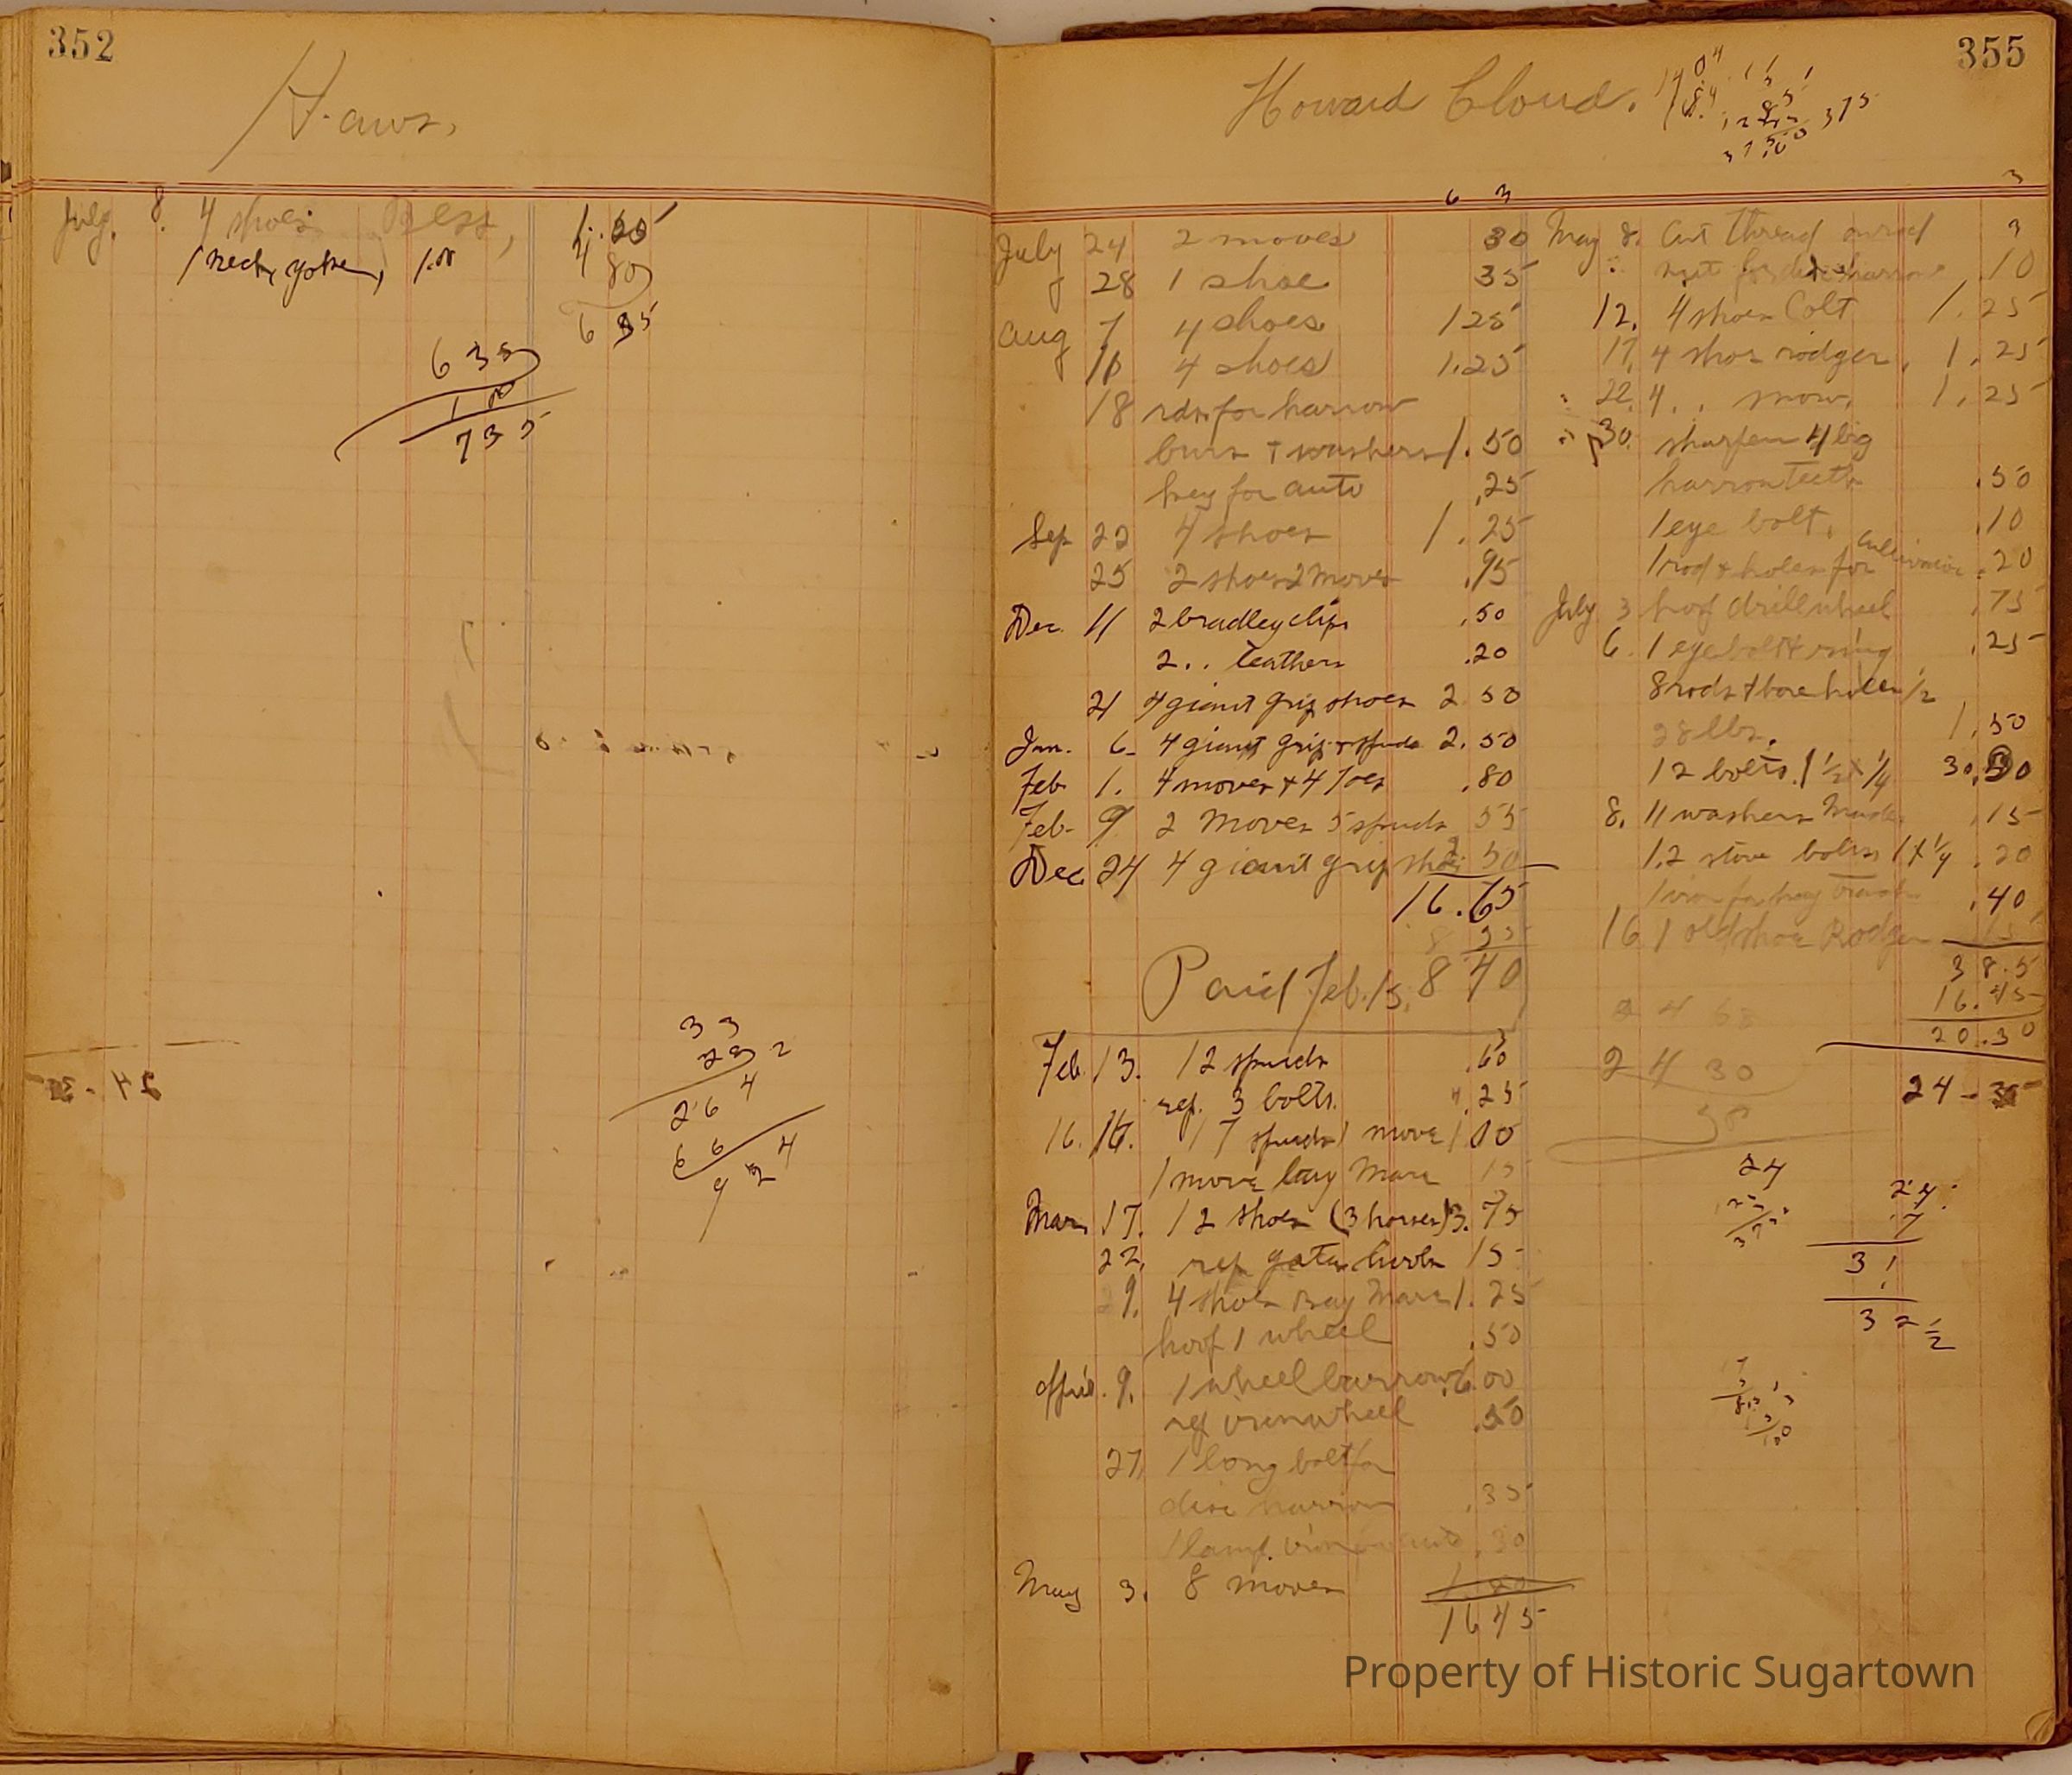 352
Haws.
July. 8. 4 shoes Bess, 1.25
1 neck yoke, 1.00 4 80
6 35
6 35
1 00
7 35
33
2
264
66
924
355
Howard Cloud.
375
6 3
July 24 2 moves 30
28 1 shoe 35
Aug 7 4 shoes 125
4 shoes 1.25
18 rds for harrow
burs + washers 1.50
key for auto .25
Sep 22 4 shoes 1.25
25 2 shoes 2 moves .95
Dec. 11 2 bradley clips .50
2 . . leathers .20
21 4 giant grip shoes 2 50
Jan. 6 4 giant grip + spuds 2.50
Feb 1. 4 moves + 4 Toes .80
Feb 9 2 Moves 5 spuds 55
Dec 24 4 giant grip shoes 2 50
16.65
8 25
Paid Feb. 15. 8 40
Feb 13. 12 spuds .60
rep. 3 bolts. .25
16. 16. 17 spuds 1 move 1 00
1 move bay Mare 15
Mar. 17. 12 shoes (3 horses) 3.75
22. rep gate 15
9. 4 shoes Bay Mare 1.25
hoof 1 wheel .50
April. 9. 1 wheel barrow 6.00
rep iron wheel .50
27 1 long bolt for
disc harrow .35
1 lamp iron .30
May 3. 8 moves
16 45
3
May 8. Cut thread 3
nut for disc harrow .10
12. 4 shoes Colt 1.25
17. 4 shoes rodger, 1.25
22. 4 . . snow, 1.25
30. sharpen 4 big
harrow teeth .50
1 eye bolt. .10
1 rod + holes for cultivator .20
July 3 hoof drill wheel .75
6. 1 eyebolt + ring .25
8 rods + bore holes 1/2
28 lbs. 1.50
12 bolts. 1 1/2 x 1/4 30
8. 11 washers Made .15
12 stove bolts 1 x 1/4 .20
1 iron for hay .40
16 1 old shoe Rodger 15
38.5
16.45
20.30
2 4 30
24-35
24
24
7
31
32 1/2
Property of Historic Sugartown